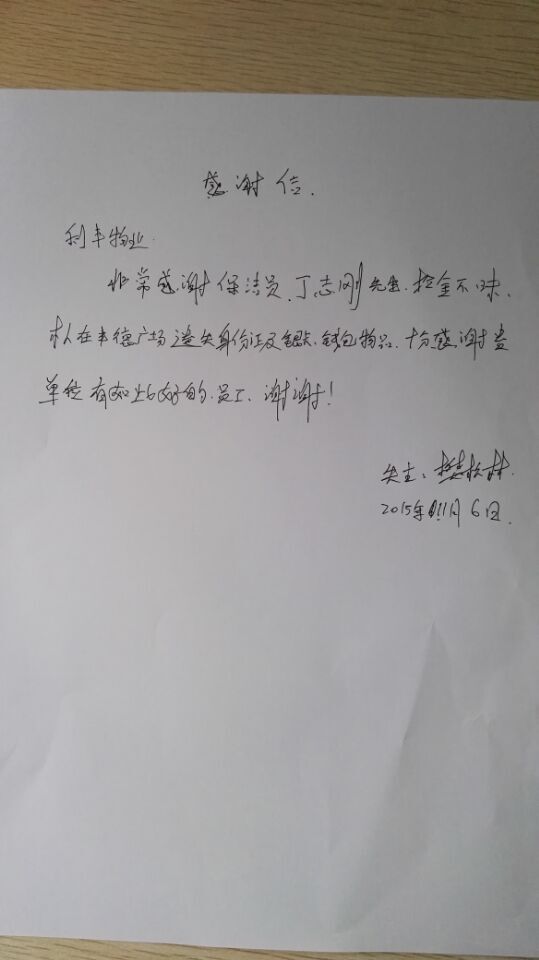 感谢信.
利丰物业.
非常感谢保洁员、丁志刚先生.捡金不昧.
本人在丰德广场遗失身份证及钱包物品.十分感谢贵
单位有如此好的.员工、谢谢!
失主:樊松林.
2015年11月6日.